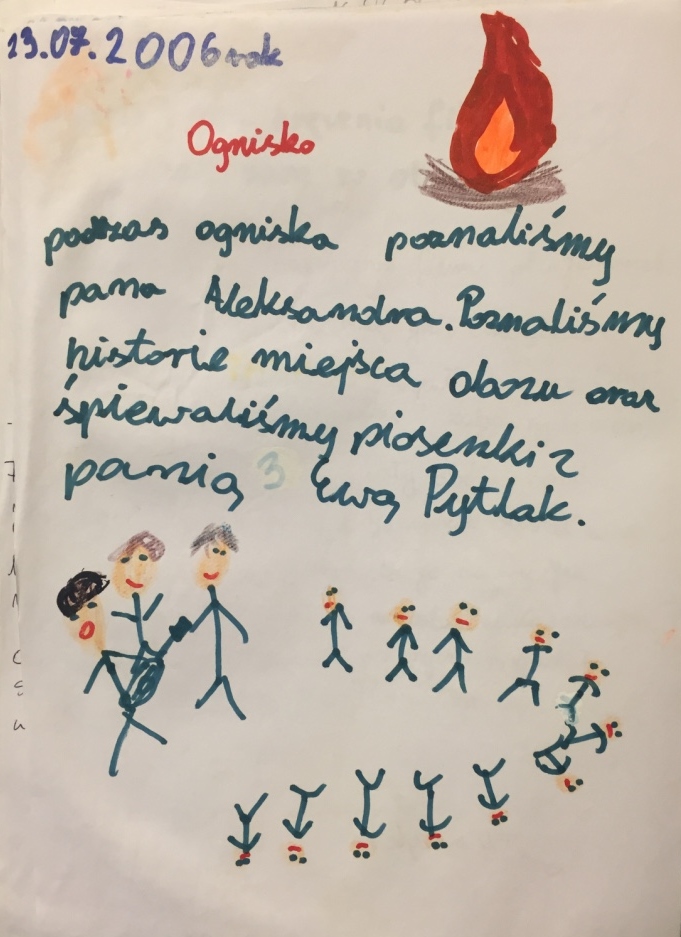 13.07.2006 rok
Ognisko
podczas ogniska poznaliśmy
pana Aleksandra. Poznaliśmy
historie miejsca obozu oraz
śpiewaliśmy piosenki z
panią Ewą Pytlak.